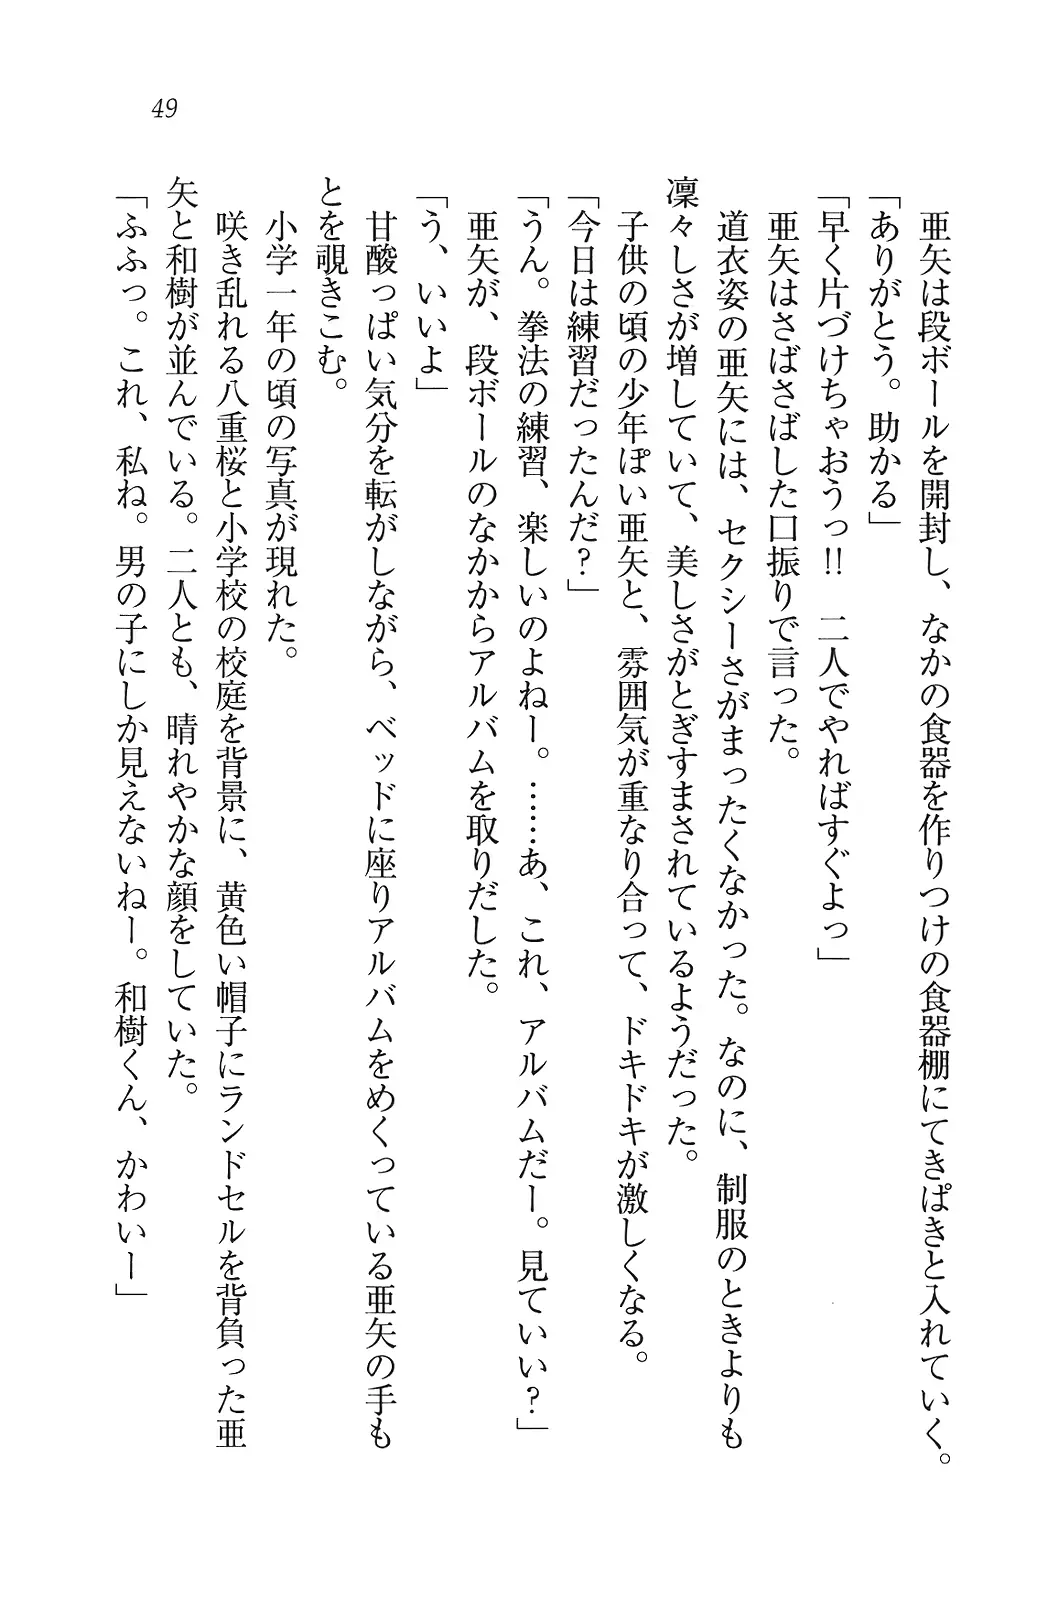 49
　亜矢は段ボールを開封し、なかの食器を作りつけの食器棚にてきぱきと入れていく。
「ありがとう。助かる」
「早く片づけちゃおうっ!!　二人でやればすぐよっ」
　亜矢はさばさばした口振りで言った。
　道衣姿の亜矢には、セクシーさがまったくなかった。なのに、制服のときよりも
凜々しさが増していて、美しさがとぎすまされているようだった。
　子供の頃の少年ぽい亜矢と、雰囲気が重なり合って、ドキドキが激しくなる。
「今日は練習だったんだ?」
「うん。拳法の練習、楽しいのよねー。……あ、これ、アルバムだー。見ていい?」
　亜矢が、段ボールのなかからアルバムを取りだした。
「う、いいよ」
　甘酸っぱい気分を転がしながら、ベッドに座りアルバムをめくっている亜矢の手も
とを覗きこむ。
　小学一年の頃の写真が現れた。
　咲き乱れる八重桜と小学校の校庭を背景に、黄色い帽子にランドセルを背負った亜
矢と和樹が並んでいる。二人とも、晴れやかな顔をしていた。
「ふふっ。これ、私ね。男の子にしか見えないねー。和樹くん、かわいー」